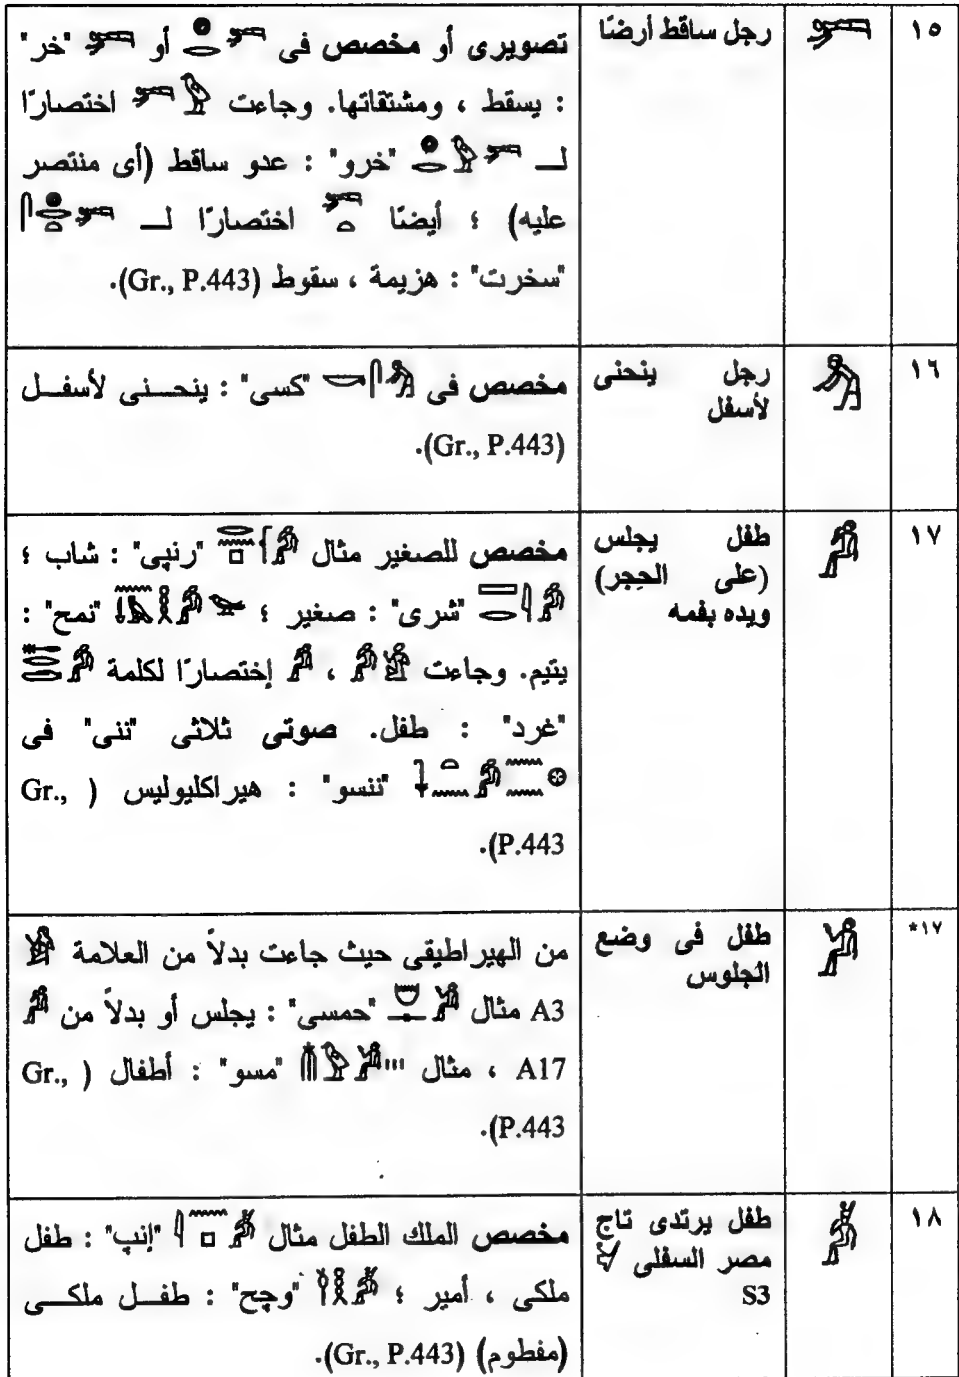 ١٥
رجل ساقط أرضًا
تصويرى أو مخصص فى أو "خر"
: يسقط ، ومشتقاتها. وجاءت اختصارًا
لـ "خرو" : عدو ساقط (أى منتصر
عليه) ؛ أيضًا اختصارًا لـ
"سخرت" : هزيمة ، سقوط (Gr., P.443).
١٦
رجل ينحنى
لأسفل
مخصص فى "كسى" : ينحنى لأسفل
(Gr., P.443).
١٧
طفل يجلس
(على الحِجر)
ويده بفمه
مخصص للصغير مثال "رنپى" : شاب ؛
"شرى" : صغير ؛ "نمح" :
يتيم. وجاءت ، إختصارًا لكلمة
"غرد" : طفل. صوتى ثلاثى "ننى" فى
"ننسو" : هيراكليوليس ( Gr.,
P.443).
١٧*
طفل فى وضع
الجلوس
من الهيراطيقى حيث جاءت بدلاً من العلامة
A3 مثال "حمسى" : يجلس أو بدلاً من
A17 ، مثال "مسو" : أطفال ( Gr.,
P.443).
١٨
طفل يرتدى تاج
مصر السفلى
S3
مخصص الملك الطفل مثال "إنپ" : طفل
ملكى ، أمير ؛ "وچح" : طفل ملكى
(مفطوم) (Gr., P.443).